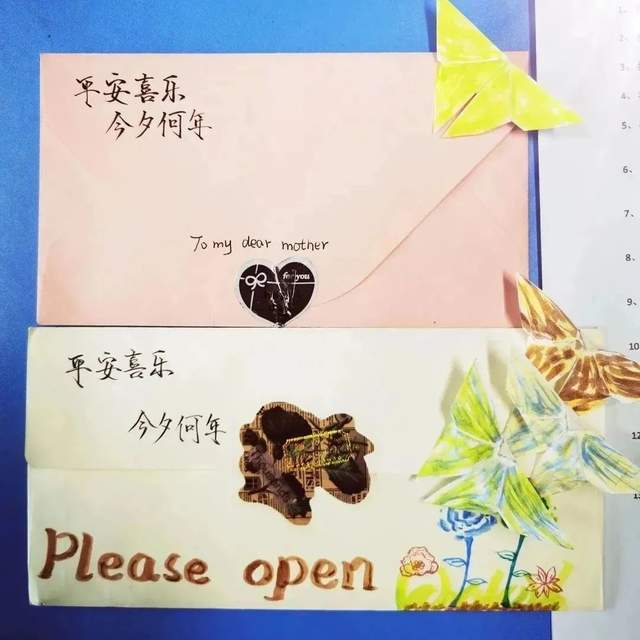 平安喜乐
今夕何年
To my dear mother
for you
平安喜乐
今夕何年
Please open
1、
2、
3、
4、
5、
6、
7、
8、
9、
10
12
13